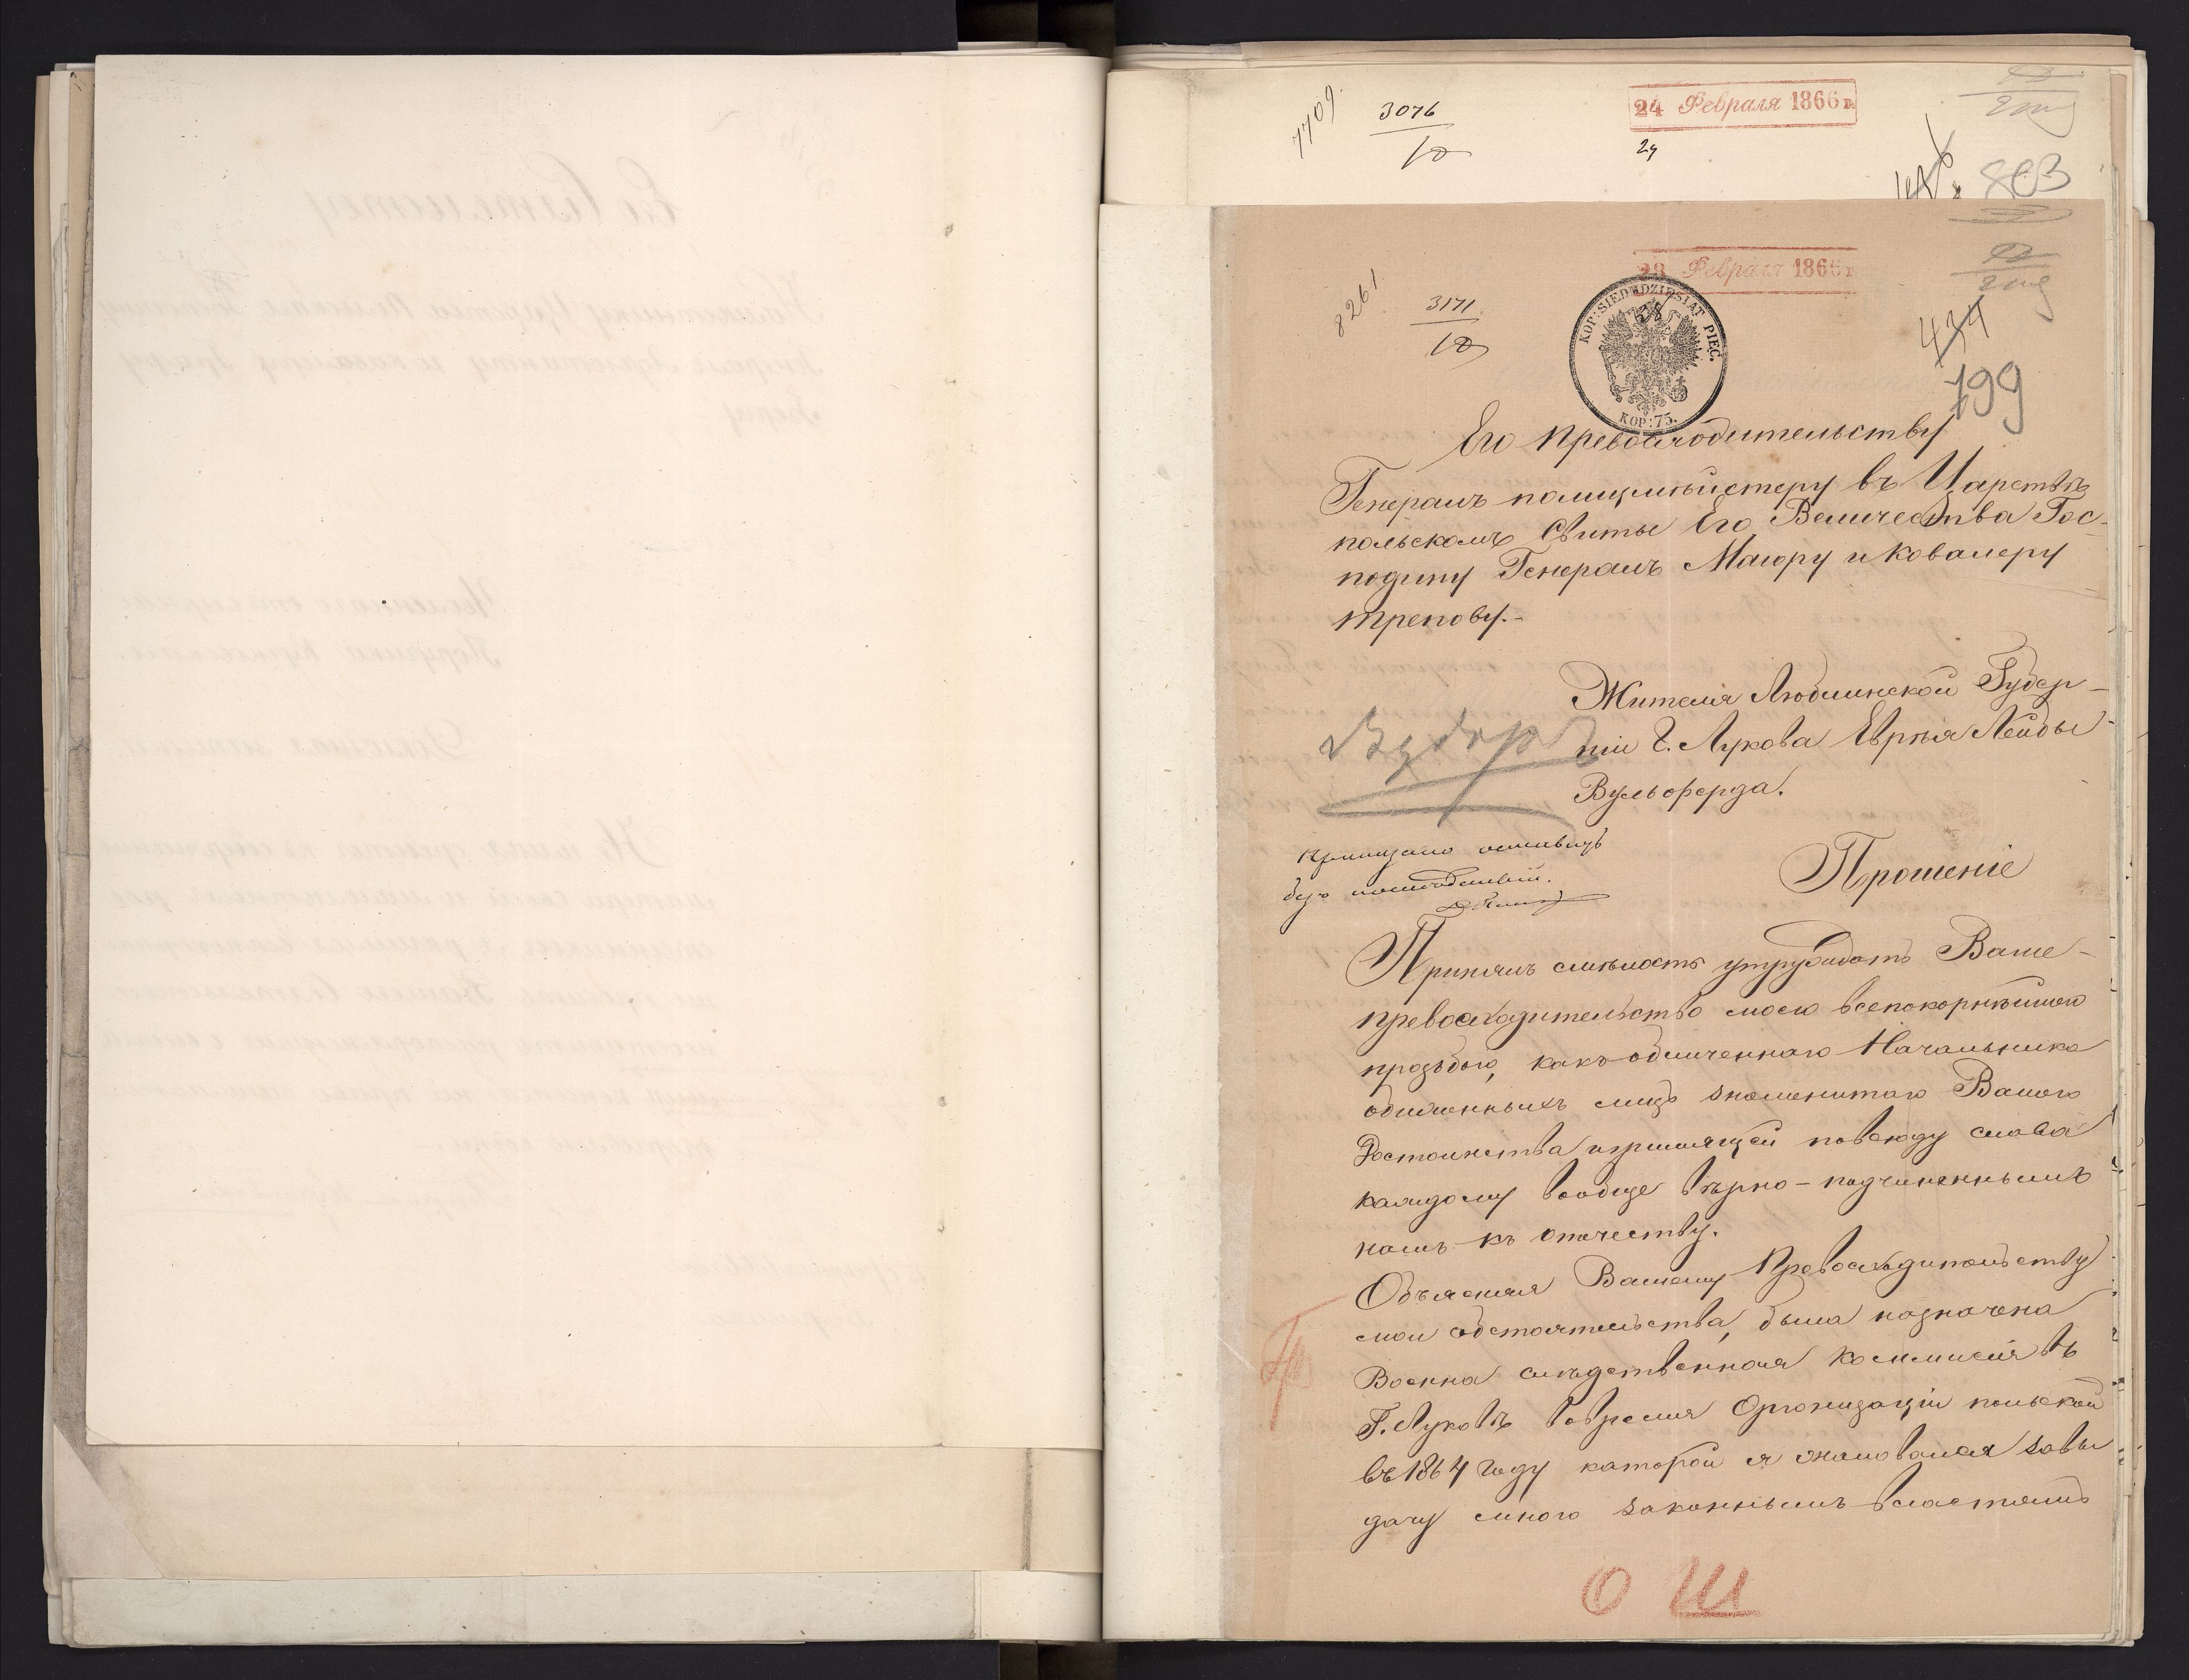 7709.
3076
10
24 Февраля 1866 г.
24
803
28 Февраля 1866 г.
8261
3171
10
434
799
KOP: SIEDMDZIESIĄT PIĘĆ.
KOP: 75.
Его Превосходительству
Генералъ полицмейстеру въ Царствѣ
польскомъ Свиты Его Величества Гос-
подину Генералъ Маіору и Ковалеру
трепову.-
Жителя Люблинской Губер-
ніи г. Лукова Еврѣя Лейбы
Вульфферда.
Вздоръ
Приказано оставить
безъ послѣдствій.
Прошеніе
Принялъ смѣлость утруждать Ваше-
превосходительство моею всепокорнѣйшею
прозьбою, какъ обличеннаго Начальника
обличенныхъ лицъ знаменитаго Вашего
Достоинства повсюду слава
каждому вообще вѣрно-подчиненнымъ
намъ къ отечеству.
Объясняя Вашему Превосходительству
мои обстоятельства, была назначена
Военна слѣдственная коммисія въ
Г. Луковѣ вовремя Организаціи польской
въ 1864 году каторой я завы
дачу мною законнымъ властямъ
О Ш